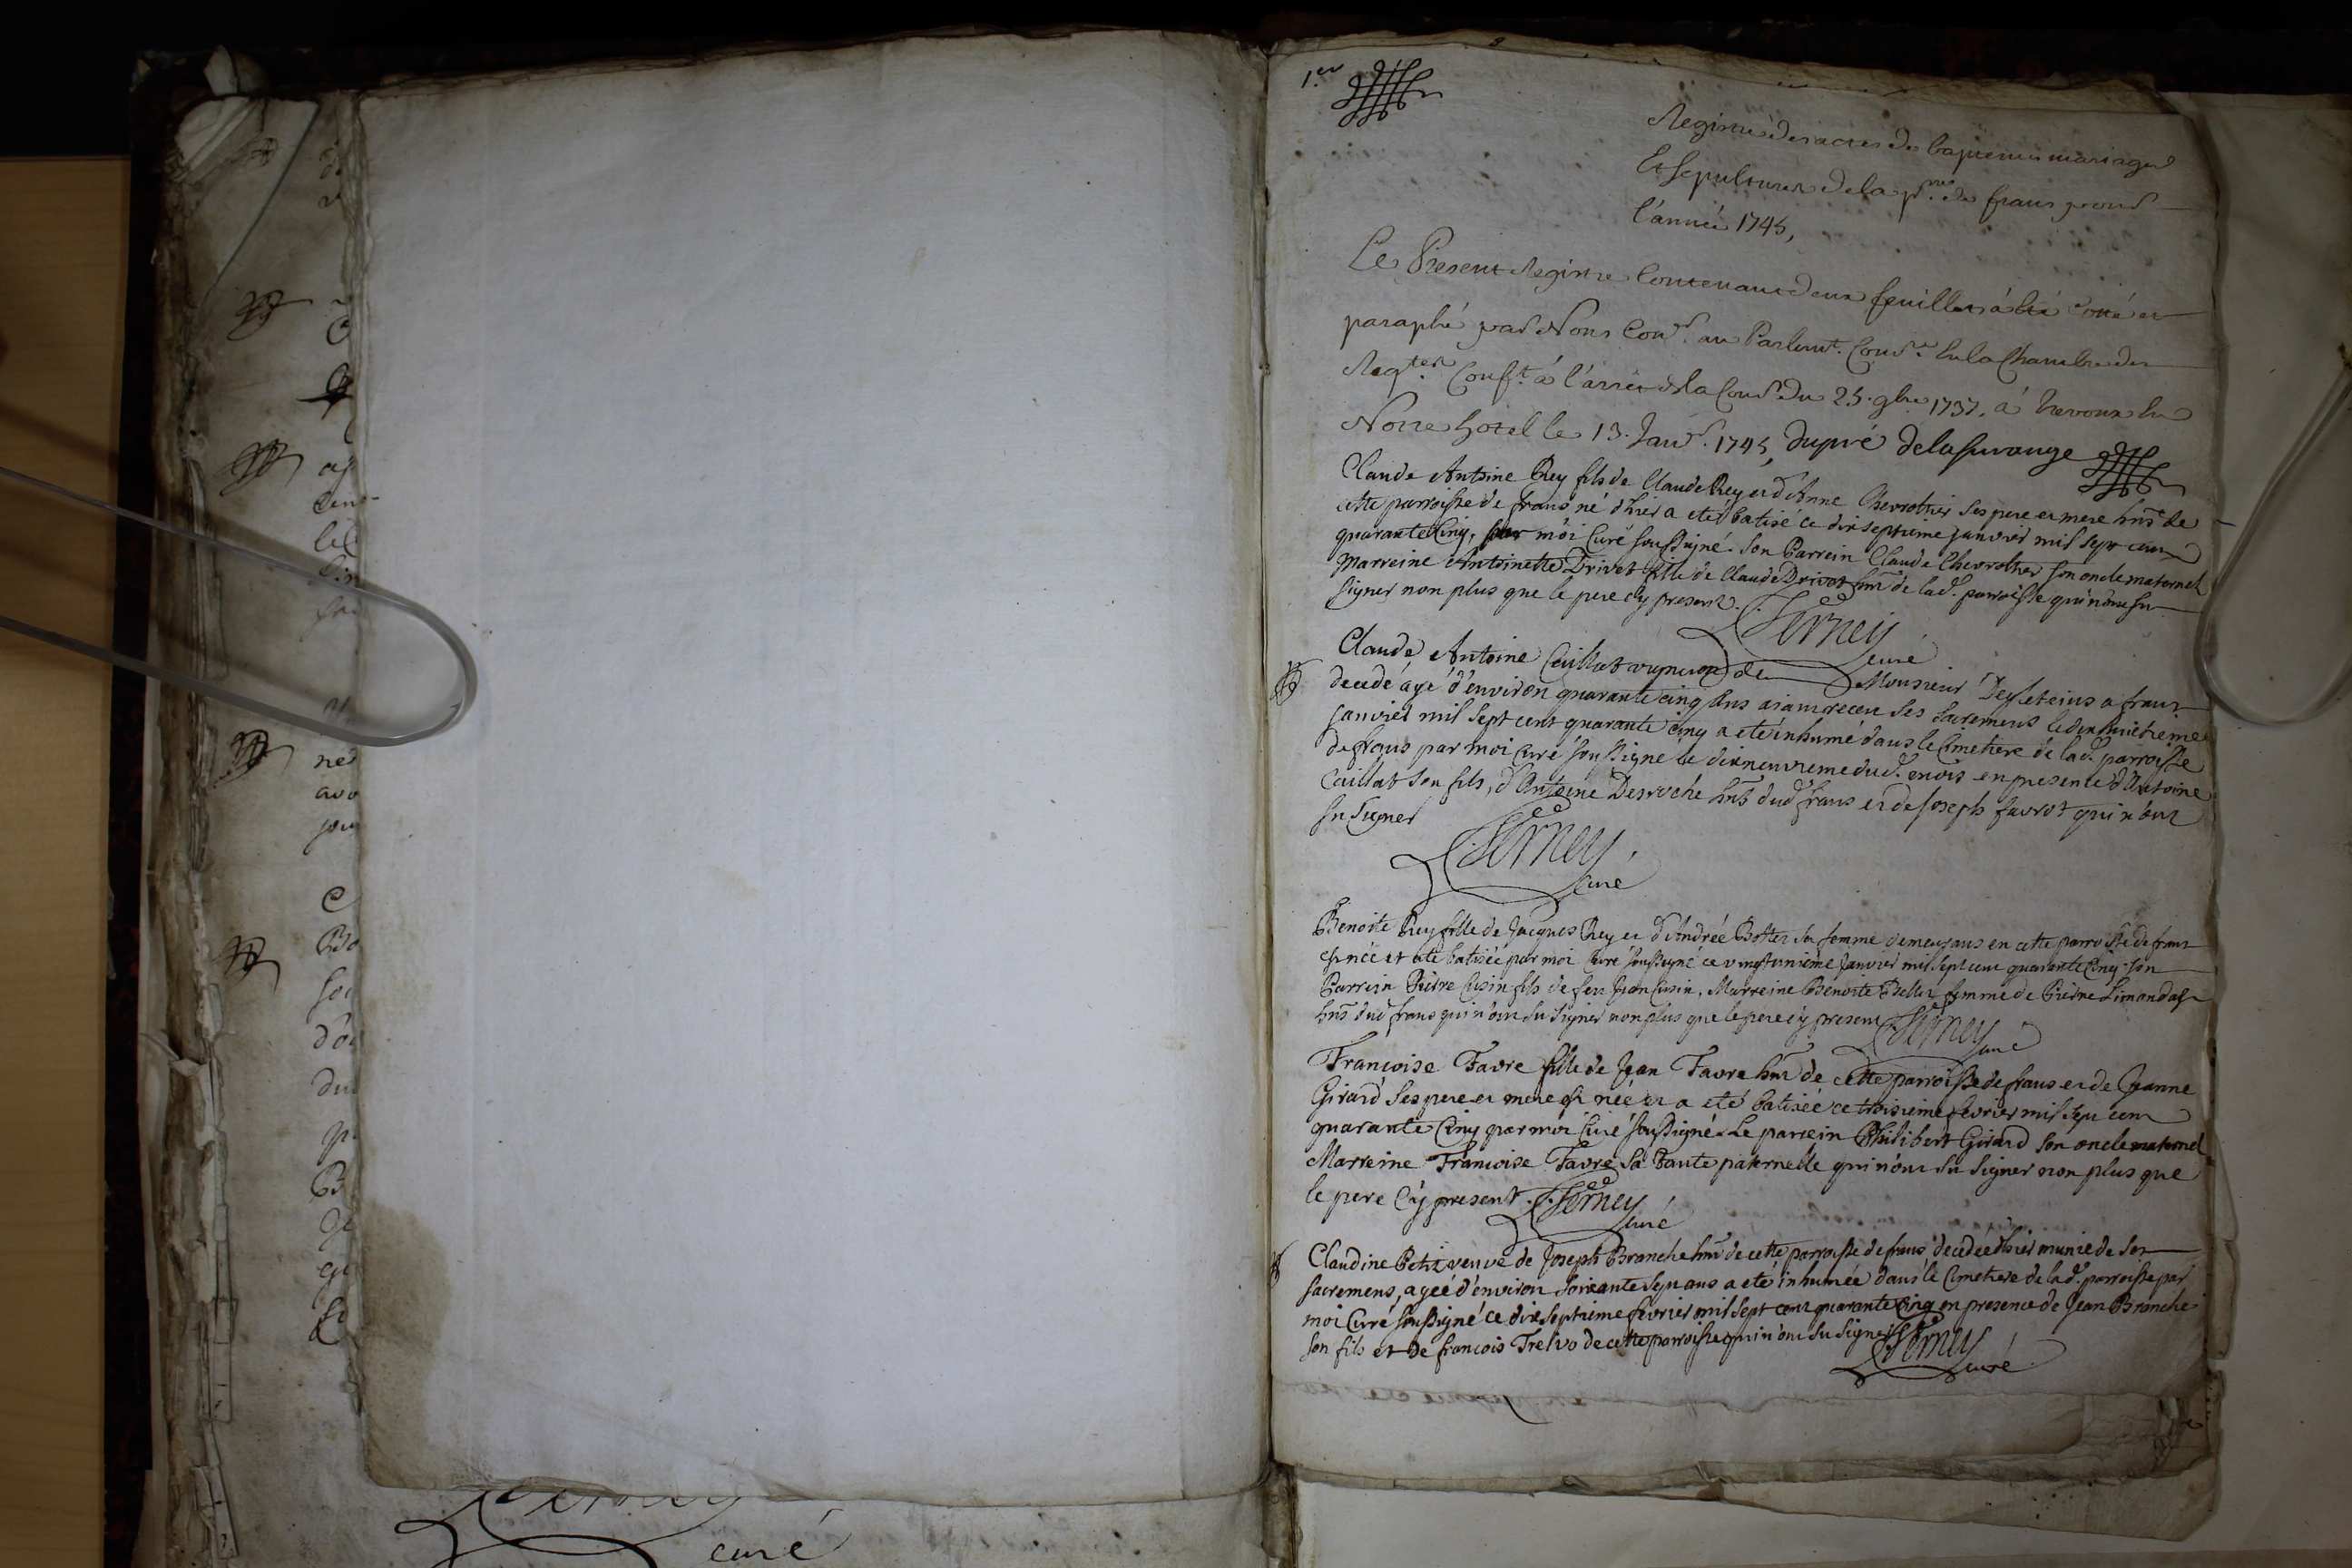 1.er
Registre des actes de baptemes mariages
Et sepultures de la p.sse de frans pour
l'année 1745,
Le Present Registre Contenant deux feuillets à été cotté et
paraphé par Nous Con.r au Parlem.t Com.re en la Chambre des
Req.tes Conf.t à l'arrêt de la Cour du 25. 9bre 1737. à Trevoux en
Notre hotel le 13. Janv.r 1745,
Claude Antoine Rey fils de Claude Rey et d'Anne Chevrottier ses pere et mere hñs de
cette parroisse de frans né d'hier a eté batisé ce dix septieme janvier mil sept cent
quarante Cinq, par môi Curé soussigné. Son Parrein Claude Chevrottier son oncle maternel
Marreine Antoinette Drivet fille de Claude Drivet hñt de lad. parroisse qui n'ont su
signer non plus que le pere cy present.
Perney
curé
Claude Antoine Caillat vigneron de Monsieur a frans
decedé âgé d'environ quarante cinq ans aiant receu ses sacremens le dix huitieme
janvier mil sept cent quarante cinq a eté inhumé dans le Cimetiere de lad. parroisse
de frans par moi Curé soussigné le dixneuvieme dud. mois en presence d'Antoine
Caillat son fils, d'Antoine Desroche hñs dud frans et de Joseph favrot qui n'ont
su signer
Perney
curé
Benoite Rey fille de Jacques Rey et d'Andrée sa femme demeurans en cette parroisse de frans
est née et eté batisée par moi Curé soussigné ce vingtunieme Janvier mil sept cent quarante Cinq. Son
Parrein Pierre Cusin fils de feu Jean Cusin, Marreine Benoite femme de Pierre Limandas
hñs dud frans qui n'ont su signer non plus que le pere cy present
Perney
curé
Francoise Favre fille de Jean Favre hñt de cette parroisse de frans et de Jeanne
Girard ses pere et mere est née et a eté batisée ce troisieme fevrier mil sept cent
quarante Cinq par môi Curé soussigné. Le parrein Philibert Girard son oncle maternel
Marreine Francoise Favre sa Tante paternelle qui n'ont su signer non plus que
le pere Cy present.
Perney
curé
Claudine Petit veuve de Joseph Branche hñt de cette parroisse de frans decedée d'hier munie de ses
sacremens, agée d'environ soixante sept ans a eté inhumée dans le Cimetiere de lad. parroisse par
moi Curé soussigné ce dix septieme fevrier mil sept cent quarante Cinq en presence de Jean Branche
son fils et de francois Trelvo de cette parroisse qui n'ont su signer
Perney
curé
curé